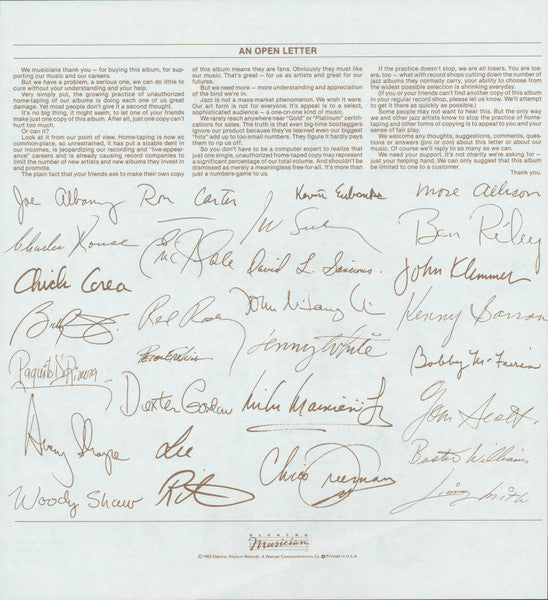 AN OPEN LETTER
We musicians thank you -- for buying this album, for sup-
porting our music and our careers.
But we have a problem, a serious one, we can do little to
cure without your understanding and your help.
Very simply put, the growing practice of unauthorized
home-taping of our albums is doing each one of us great
damage. Yet most people don't give it a second thought.
It's no big thing, it might seem, to let one of your friends
make just one copy of this album. After all, just one copy can't
hurt too much.
Or can it?
Look at it from our point of view. Home-taping is now so
common-place, so unrestrained, it has put a sizable dent in
our incomes. It is jeopardizing our recording and "live-appear-
ance" careers and is already causing record companies to
limit the number of new artists and new albums they invest in
and promote.
The plain fact that your friends ask to make their own copy
of this album means they are fans. Obviously they must like
our music. That's great -- for us as artists and great for our
futures.
But we need more -- more understanding and appreciation
of the bind we're in.
Jazz is not a mass-market phenomenon. We wish it were.
Our art form is not for everyone. It's appeal is to a select,
sophisticated audience -- a one-on-one kind of music.
We rarely reach anywhere near "Gold" or "Platinum" certifi-
cations for sales. The truth is that even big-time bootleggers
ignore our product because they've learned even our biggest
"hits" add up to too-small numbers. They figure it hardly pays
them to rip us off.
So you don't have to be a computer expert to realize that
just one single, unauthorized home-taped copy may represent
a significant percentage of our total volume. And shouldn't be
dismissed as merely a meaningless free-for-all. It's more than
just a numbers-game to us.
If the practice doesn't stop, we are all losers. You are los-
ers, too -- what with record shops cutting down the number of
jazz albums they normally carry, your ability to choose from
the widest possible selection is shrinking everyday.
(If you or your friends can't find another copy of this album
in your regular record shop, please let us know. We'll attempt
to get it there as quickly as possible.)
Some people may not want to hear this. But the only way
we and other jazz artists know to stop the practice of home-
taping and other forms of copying is to appeal to you and your
sense of fair play.
We welcome any thoughts, suggestions, comments, ques-
tions or answers (pro or con) about this letter or about our
music. Of course we'll reply to as many as we can.
We need your support. It's not charity we're asking for --
just your helping hand. We can only suggest that this album
be limited to one to a customer.
Thank you.
Joe Albany Ron Carter Kevin Eubanks Mose Allison
Charlie Rouse Ben Riley
Chick Corea David L. Sancious John Klemmer
Red Rodney Kenny Barron
Lenny White
Paquito D'Rivera Bobby McFerrin
Dexter Gordon Mike Mainieri Jr
Avery Sharpe Lee
Buster Williams
Woody Shaw Chico Freeman Jimmy Smith
ELEKTRA
Musician
©1982 Elektra/Asylum Records A Warner Communications Co. Printed in U.S.A.